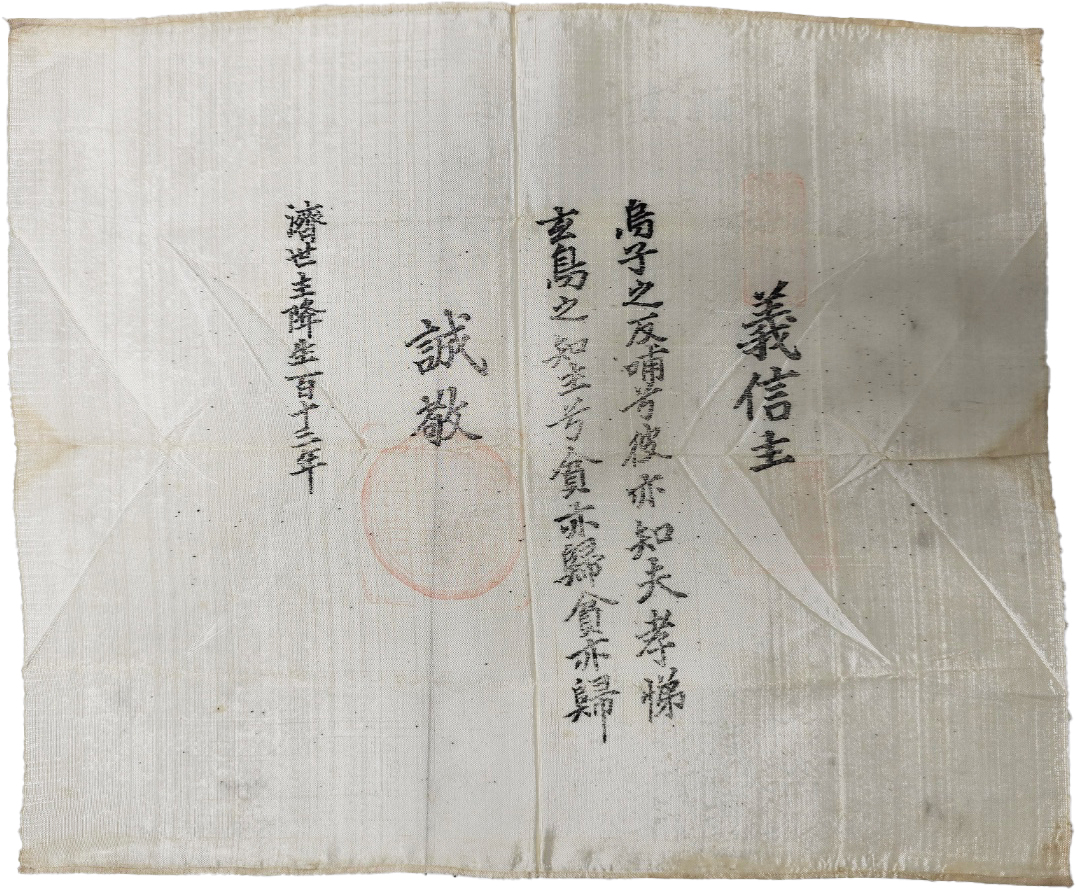 義信主
烏子之反哺兮彼亦知夫孝悌
玄鳥之知主兮貧亦歸貧亦歸
誠敬
濟世主降生百十二年